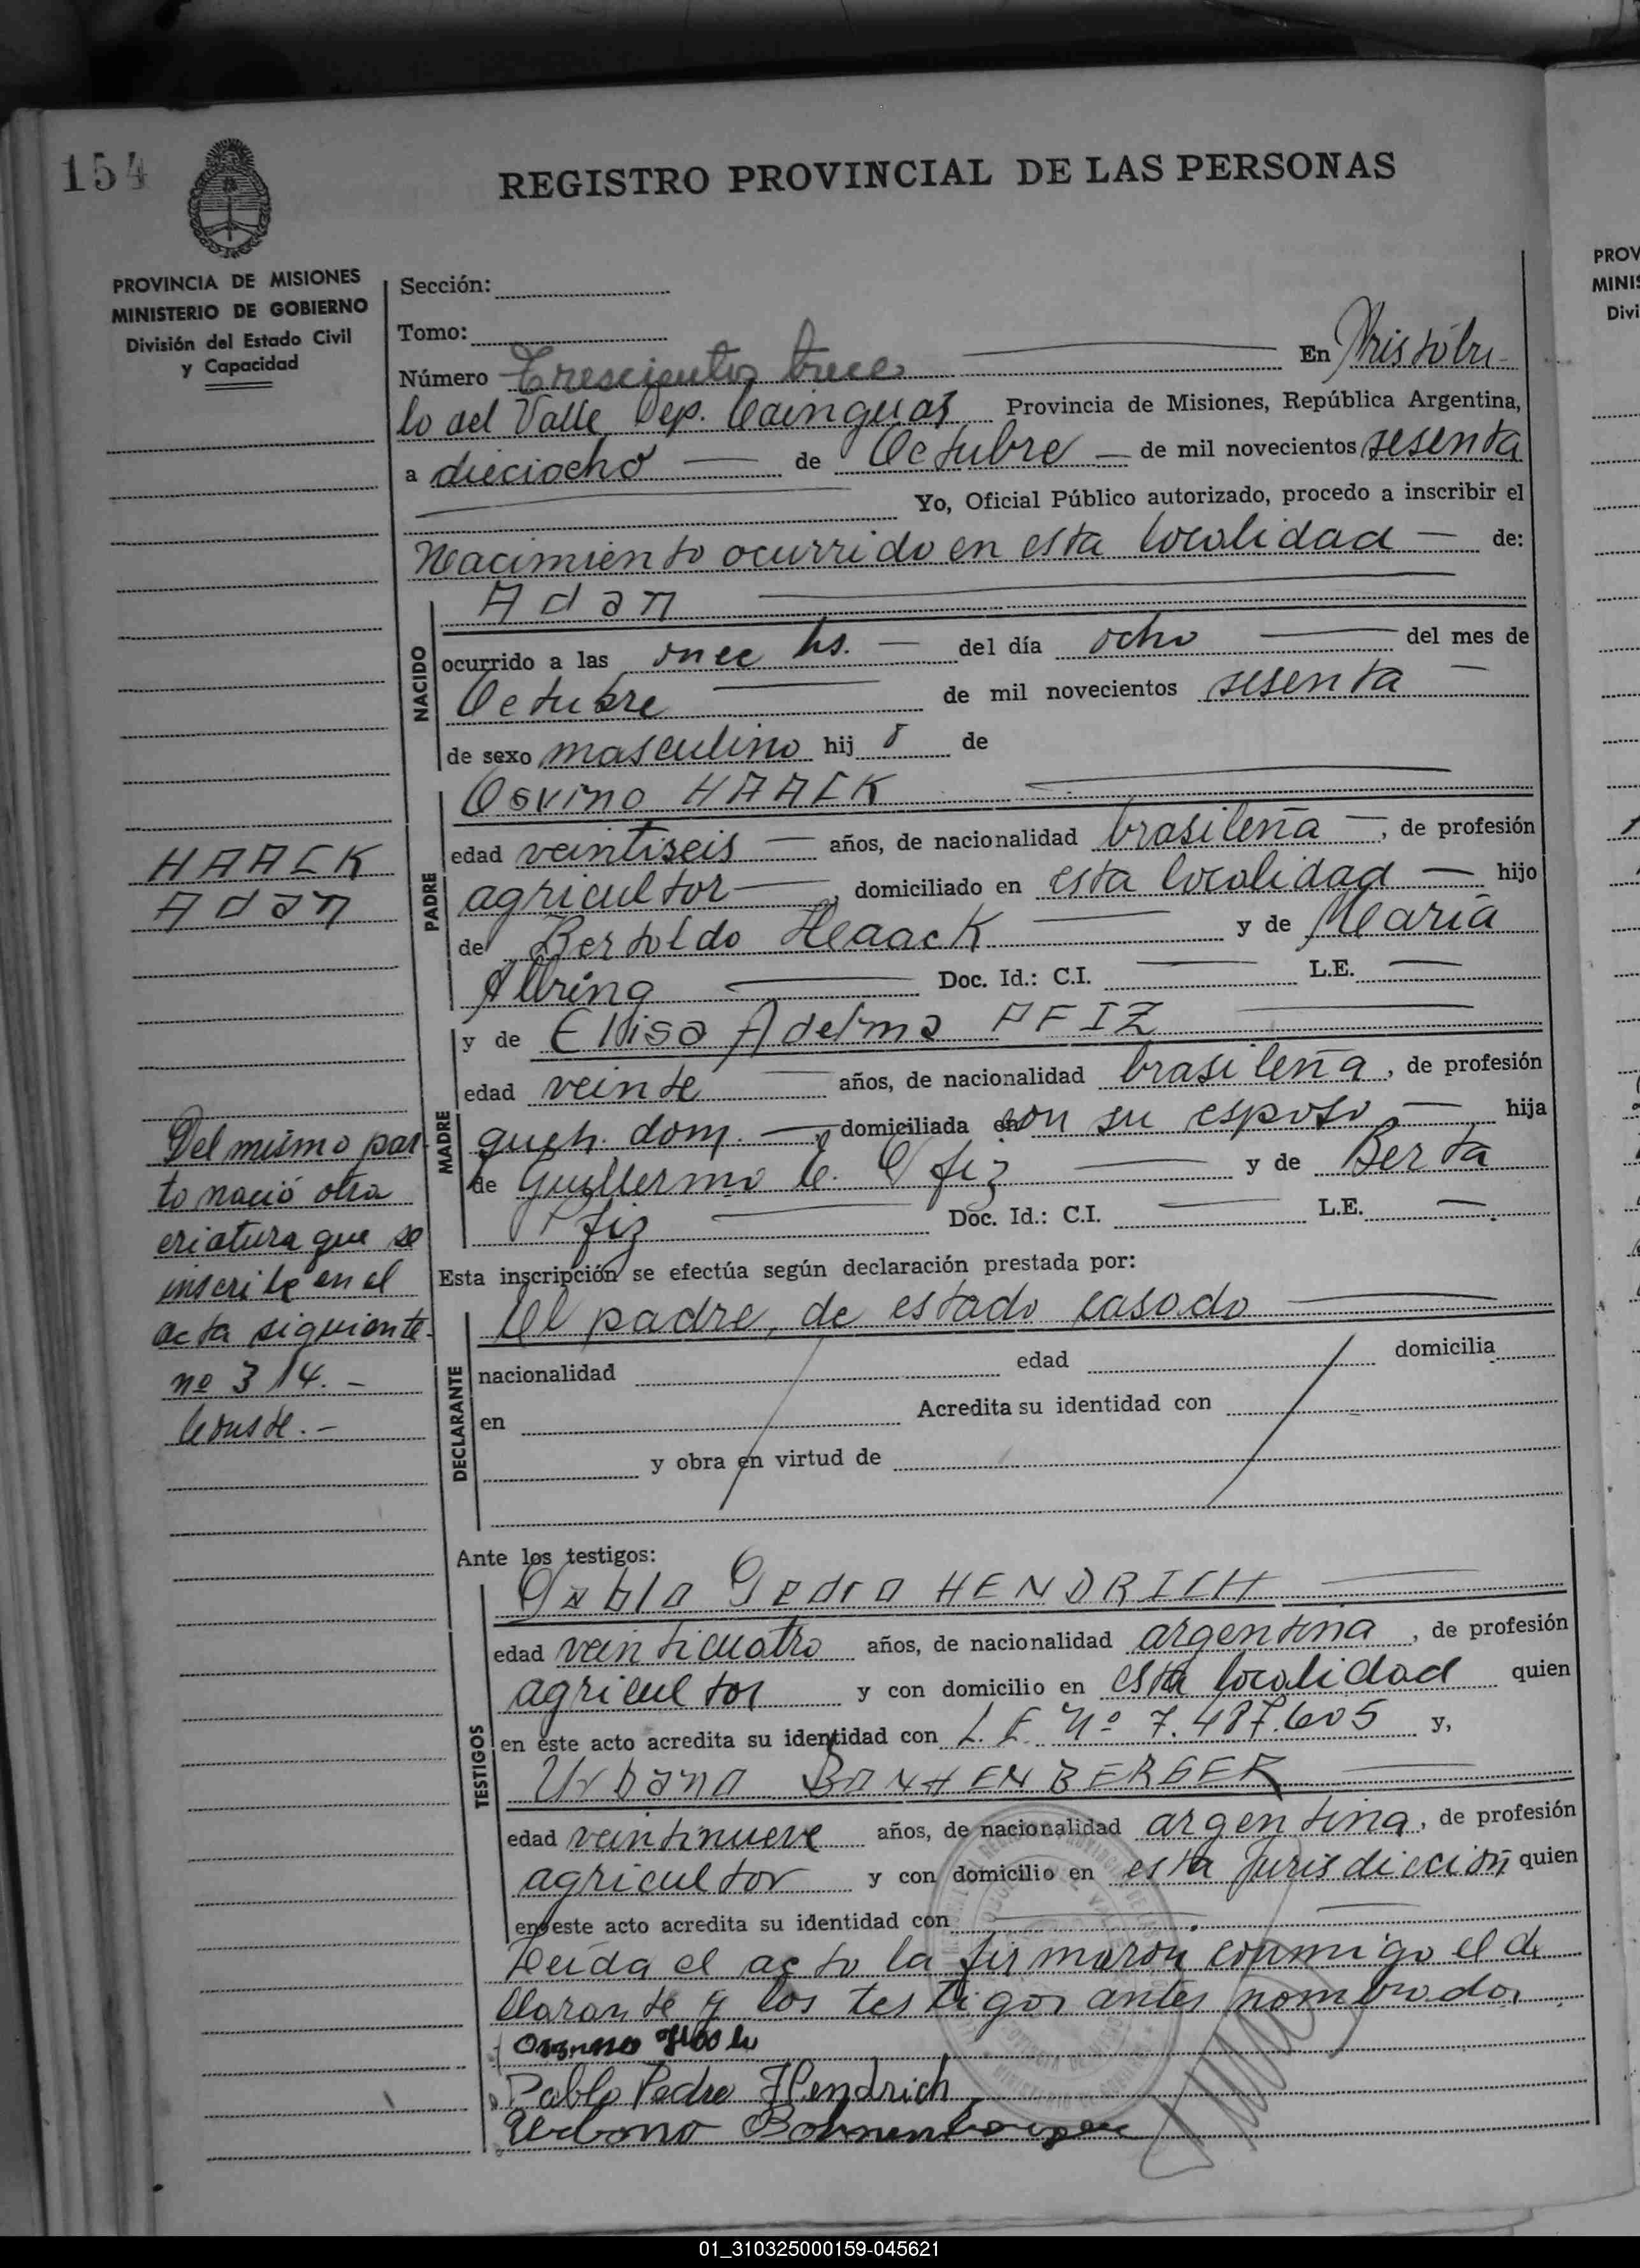 154
REGISTRO PROVINCIAL DE LAS PERSONAS
PROVINCIA DE MISIONES
MINISTERIO DE GOBIERNO
División del Estado Civil
y Capacidad
Sección:
Tomo:
Número Trescientos trece En Aristóbu-
lo del Valle Dep. Cainguas Provincia de Misiones, República Argentina,
a dieciocho de Octubre de mil novecientos sesenta
Yo, Oficial Público autorizado, procedo a inscribir el
Nacimiento ocurrido en esta localidad de:
NACIDO
Adan
ocurrido a las once hs. del día ocho del mes de
Octubre de mil novecientos sesenta
de sexo masculino hij o de
PADRE
Osvino HAACK
edad veintiseis años, de nacionalidad brasileña, de profesión
agricultor, domiciliado en esta localidad hijo
de Bertoldo Haack y de María
Allring Doc. Id.: C.I. L.E.
HAACK
Adan
MADRE
y de Ellisa Adelma PFIZ
edad veinte años, de nacionalidad brasileña, de profesión
queh. dom., domiciliada con su esposo hija
de Guillermo C. Pfiz y de Berta
Pfiz Doc. Id.: C.I. L.E.
Del mismo par-
to nació otra
criatura que se
inscribe en el
acta siguiente
nº 314.-
Conste.-
Esta inscripción se efectúa según declaración prestada por:
DECLARANTE
El padre, de estado casado
nacionalidad edad domicilia
en Acredita su identidad con
y obra en virtud de
Ante los testigos:
TESTIGOS
Pablo Pedro HENDRICH
edad veinticuatro años, de nacionalidad argentina, de profesión
agricultor y con domicilio en esta localidad quien
en este acto acredita su identidad con L. E. Nº 7.487.605 y,
Urbano BONHENBERGER
edad veintinueve años, de nacionalidad argentina, de profesión
agricultor y con domicilio en esta Jurisdicción quien
en este acto acredita su identidad con
Leída el acto la firmaron conmigo el de
clarante y los testigos antes nombrados
Pablo Pedro Hendrich
Urbano Bohnenberger
PROV
MINIS
Divi
01_310325000159-045621